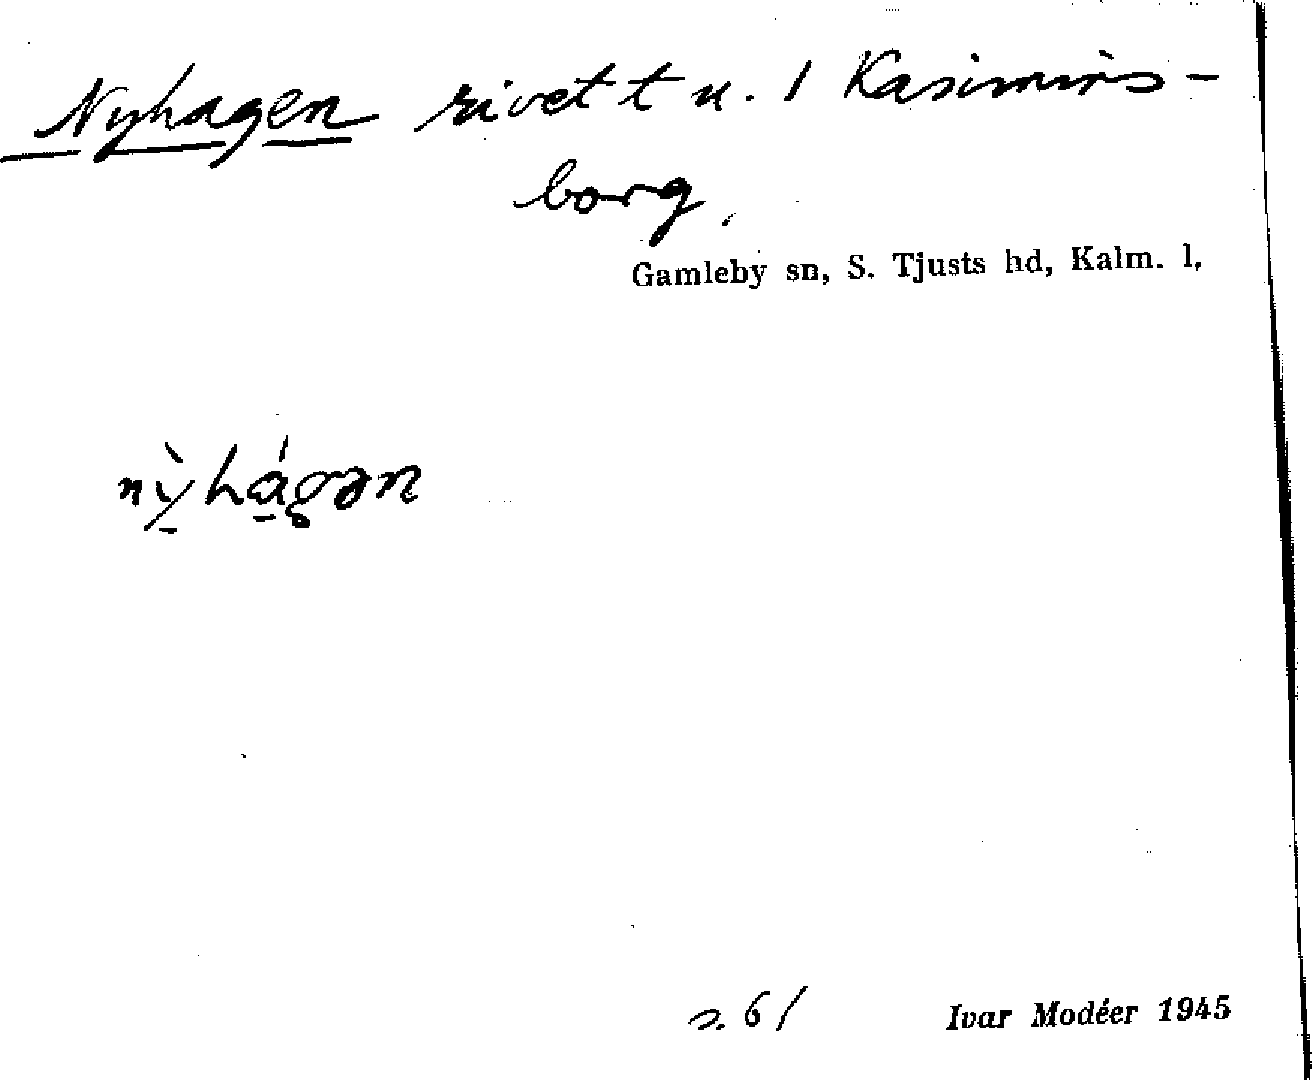 Nyhagen rivet t u. 1 Kasimirs-
borg.
Gamleby sn, S. Tjusts hd, Kalm. l.
nỳhágən
s. 61 Ivar Modéer 1945